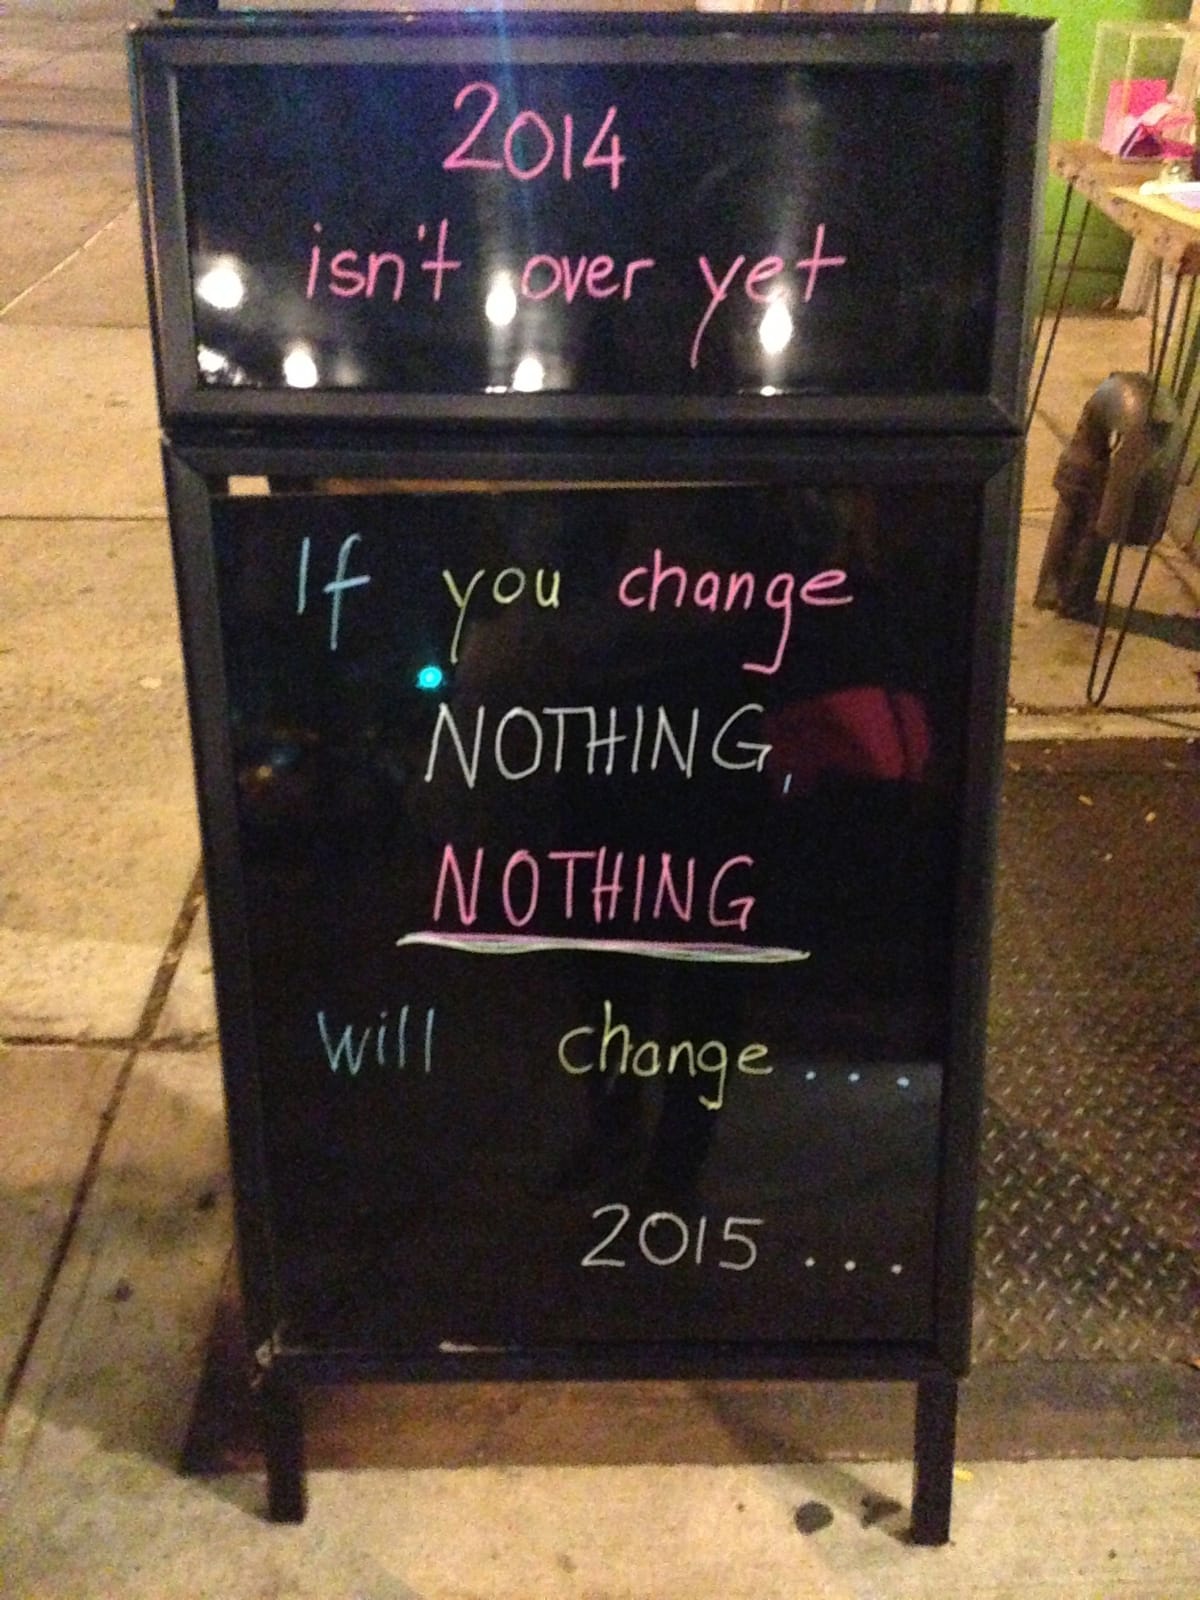 2014
isn't over yet
If you change
NOTHING,
NOTHING
will change...
2015...